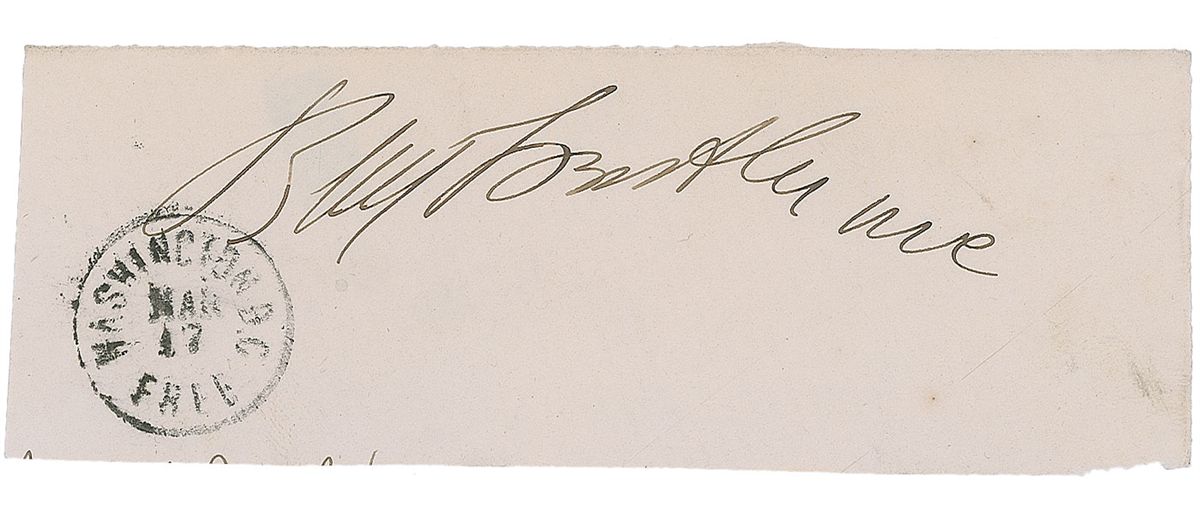 Benj F Butler MC
WASHINGTON D.C.
MAR
17
FREE